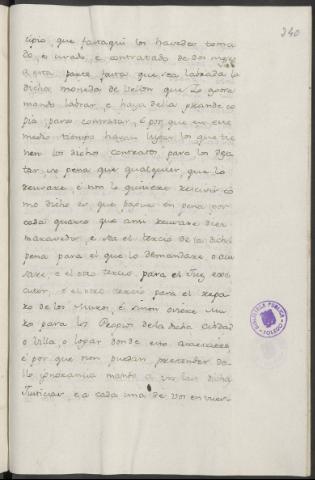 240
cipio, que fasta aqui los havedes toma
do, e usado, e contratado de dos meses
a esta parte fasta que sea labrada la
dicha moneda de vellon que Yo agora
mando labrar, e haya della grande co
pia para contratar, e por que en este
medio tiempo hayan lugar los que tie
nen los dichos contratos para los desa
tar, so pena que qualquier que lo
recusare, e non lo quisiere rescivir co
mo dicho es, que pague en pena por
cada quarto que ansi recusare diez
maravedis, e sea el tercio de la dicha
pena para el que lo demandare o acu
sare, e el otro tercio para el Juez exe
cutor, e el otro tercio para el repa
ro de los Muros, e si non oviere Mu
ro para los Propios de la dicha Cibdad
o Villa, o logar donde esto acaesciere,
e por que non puedan pretender de
llo ignorancia mando a vos las dichas
Justicias, e a cada una de vos en vues
BIBLIOTECA PÚBLICA
TOLEDO